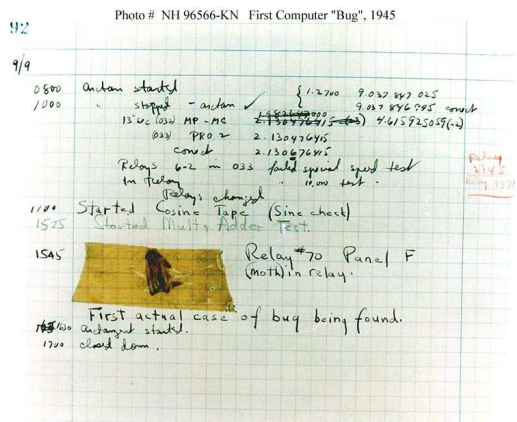 Photo # NH 96566-KN First Computer "Bug", 1945
92
9/9
0800 Antan started
1000 " stopped - antan ✓ { 1.2700 9.037 847 025
9.037 846 995 correct
13"uc (032) MP - MC 2.130476415 (-3) 4.615925059(-2)
(033) PRO 2 2.130476415
correct 2.130676415
Relays 6-2 in 033 failed special speed test
In Relay " 10,000 test "
Relays changed
1100 Started Cosine Tape (Sine check)
1525 Started Mult + Adder Test.
1545 Relay #70 Panel F
(moth) in relay.
First actual case of bug being found.
1630 antangent started.
1700 closed down.
Relay
2145
Relay 3370